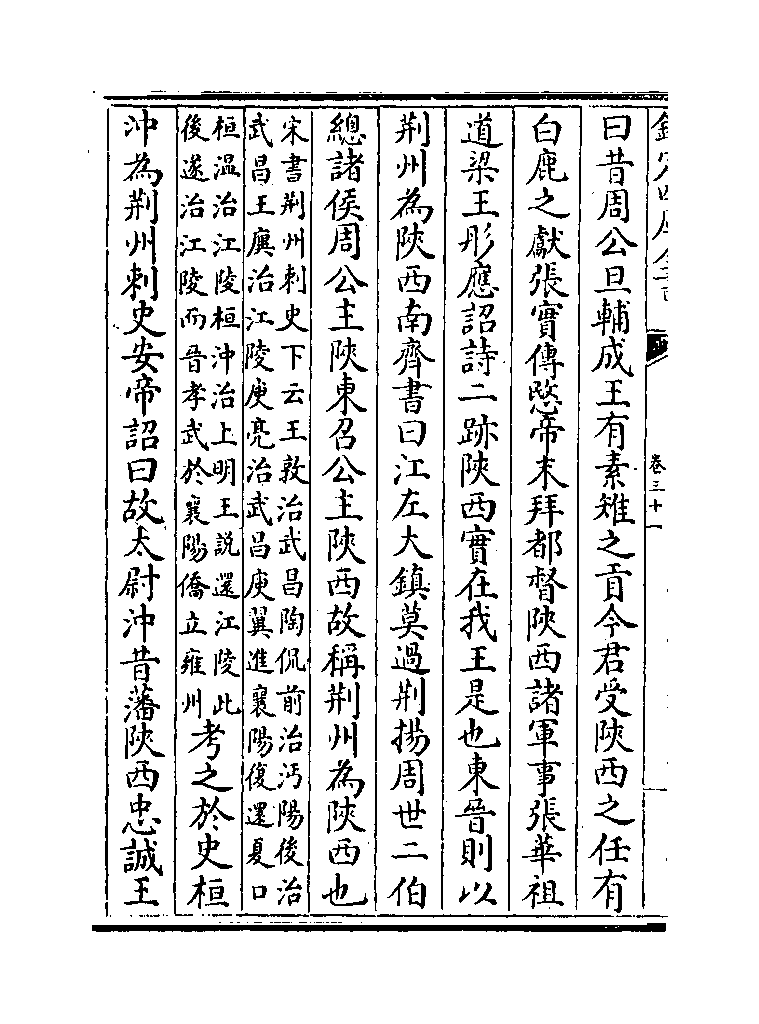 欽定四庫全書
卷三十一
曰昔周公旦輔成王有素雉之貢今君受陝西之任有
白鹿之獻張實傳愍帝末拜都督陝西諸軍事張華祖
道梁王彤應詔詩二跡陝西實在我王是也東晉則以
荆州為陝西南齊書曰江左大鎮莫過荆揚周世二伯
總諸侯周公主陝東召公主陝西故稱荆州為陝西也
宋書荆州刺史下云王敦治武昌陶侃前治沔陽後治
武昌王廙治江陵庾亮治武昌庾翼進襄陽復還夏口
桓温治江陵桓沖治上明王説還江陵此
後遂治江陵而晉孝武於襄陽僑立雍州
考之於史桓
沖為荆州刺史安帝詔曰故太尉沖昔藩陝西忠誠王